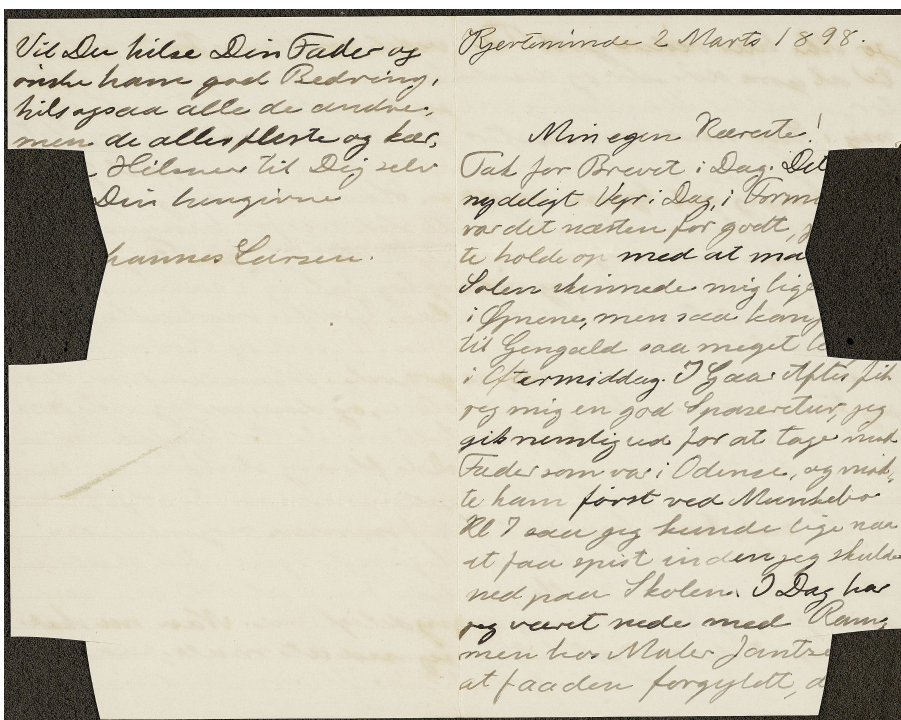 Vil Du hilse Din Fader og
ønske ham god Bedring,
hils ogsaa alle de andre,
men de allerfleste og kær,
Hilsner til Dig selv
Din hengivne
hannes Larsen.
Kjerteminde 2 Marts 1898.
Min egen Kæreste!
Tak for Brevet i Dag. Det
nydeligt Vejr i Dag, i Form
var det næsten for godt,
te holde op med at ma
Solen skinnede mig lige
i Øjnene, men saa
til Gengæld saa meget
i Eftermiddag. I Gaar Aftes fik
jeg mig en god Spaseretur, jeg
gik nemlig ud for at tage mod
Fader som var i Odense, og mød-
te ham först ved Munkebo
Kl 7 saa jeg kunde lige naa
at faa spist inden jeg skulde
ned paa Skolen. I Dag har
jeg været nede med Ram
men hos Maler Jantze
at faa den forgyldt, d